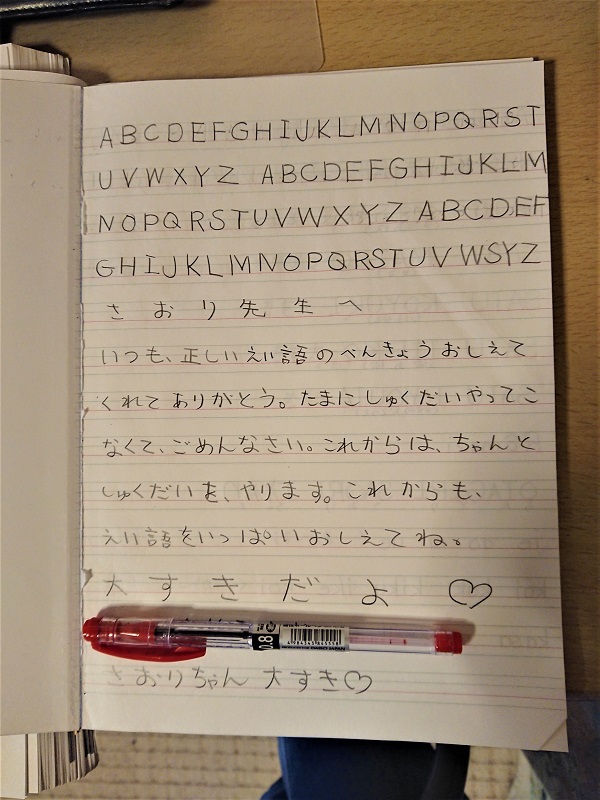 ABCDEFGHIJKLMNOPQRST
UVWXYZ ABCDEFGHIJKLM
NOPQRSTUVWXYZ ABCDEF
GHIJKLMNOPQRSTUVWSYZ
さおり先生へ
いつも、正しいえい語のべんきょうおしえて
くれてありがとう。たまにしゅくだいやってこ
なくて、ごめんなさい。これからは、ちゃんと
しゅくだいを、やります。これからも、
えい語をいっぱいおしえてね。
大すきだよ ♡
0.8
さおりちゃん 大すき♡